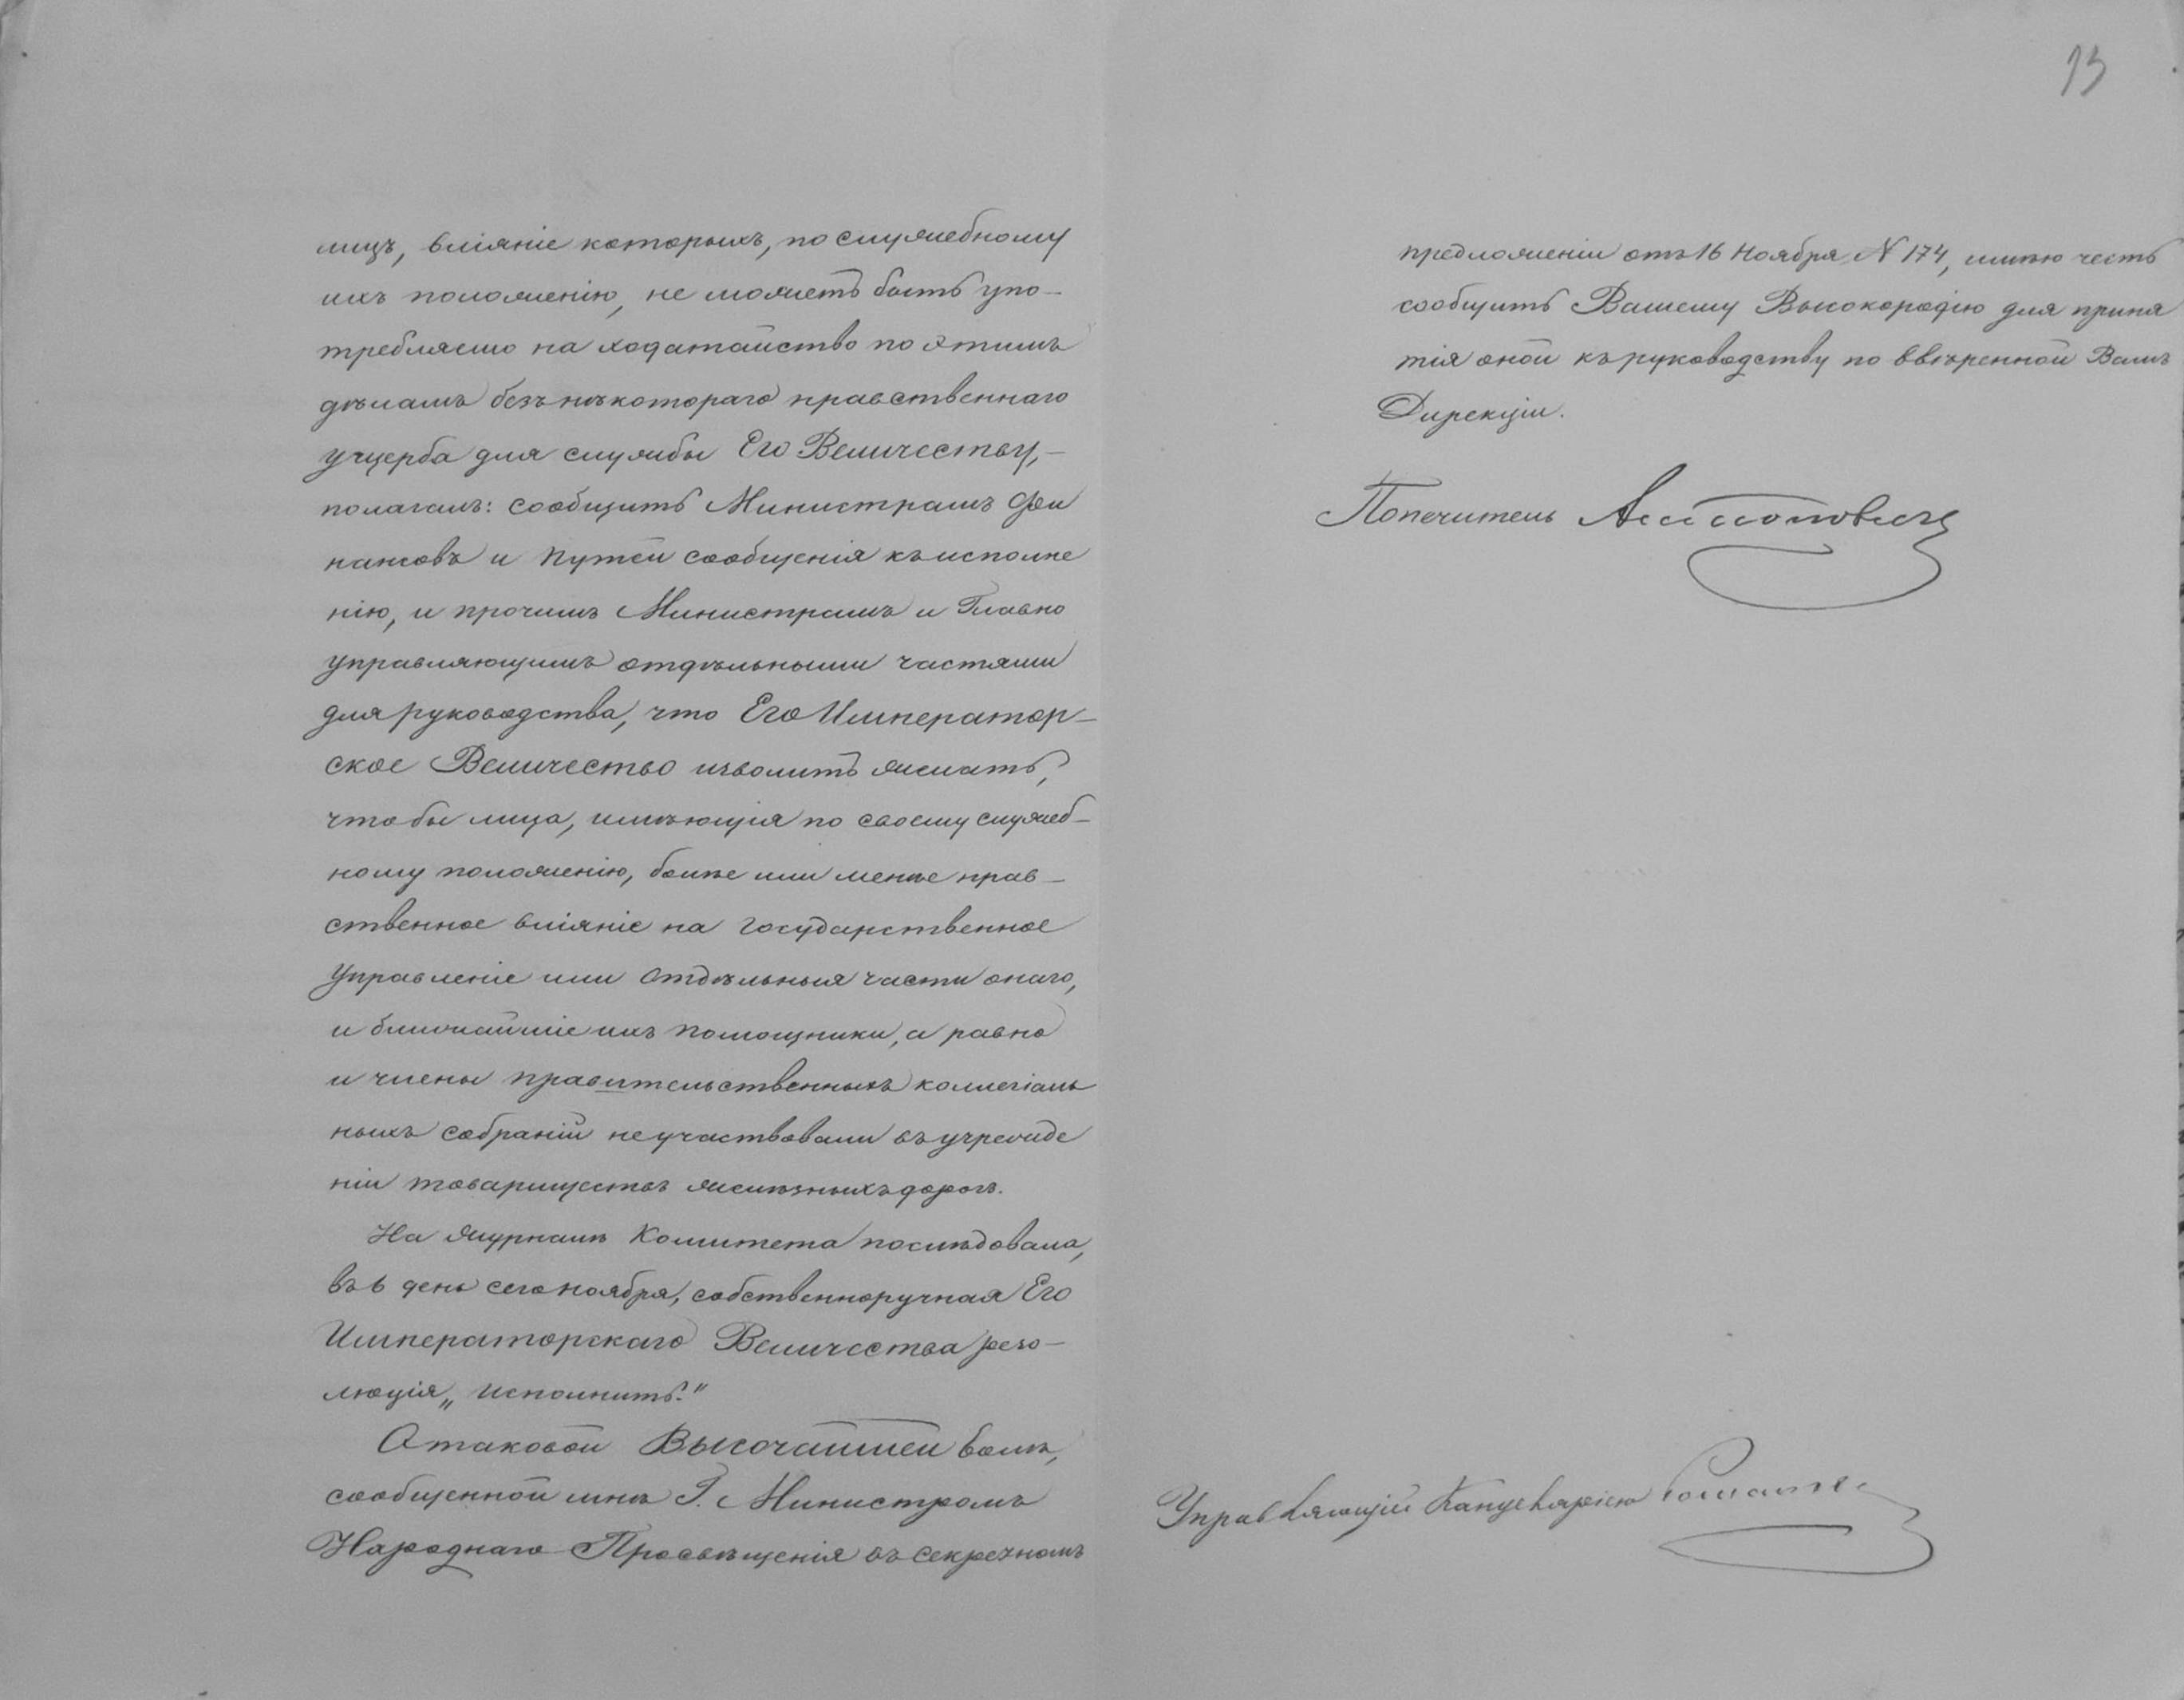 13
лицъ, вліяніе которыхъ, по служебному
ихъ положенію, не можетъ быть упо-
требляемо на ходатайство по этимъ
дѣламъ безъ нѣкотораго нравственнаго
ущерба для службы Его Величеству,-
полагалъ: сообщить Министрамъ Фи
нансовъ и Путей сообщенія къ исполне
нію, и прочимъ Министрамъ и Главно
управляющимъ отдѣльными частями
для руководства, что Его Император-
ское Величество изволитъ желать,
чтобы лица, имѣющія по своему служеб-
ному положенію, болѣе или менѣе нрав-
ственное вліяніе на государственное
управленіе или отдѣльныя части онаго,
и ближайшіе ихъ помощники, а равно
и члены правительственныхъ коллегіаль
ныхъ собраній не участвовали въ учрежде
ніи товариществъ желѣзныхъ дорогъ.
На журналѣ Комитета послѣдовала,
въ 6 день сего ноября, собственноручная Его
Императорскаго Величества резо-
люція „исполнить."
О таковой Высочайшей волѣ,
сообщенной мнѣ Г. Министромъ
Народнаго Просвѣщенія въ секретномъ
предложеніи отъ 16 Ноября N 174, имѣю честь
сообщить Вашему Высокородію для приня
тія оной къ руководству по ввѣренной Вамъ
Дирекціи.
Попечитель
Управляющій Канцеляріею